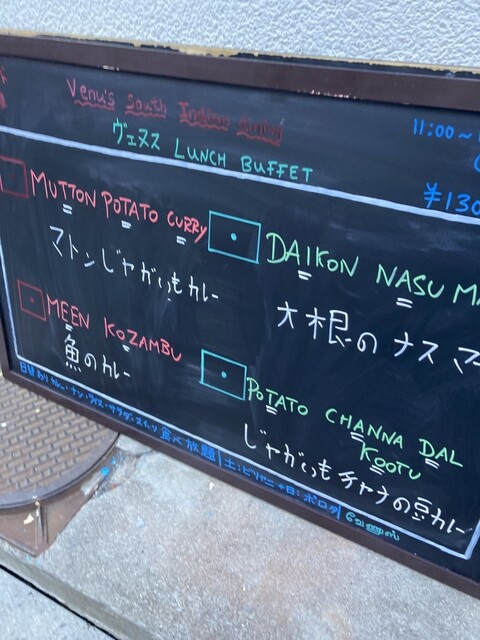 Venu's South Indian Dining
11:00~
ヴェヌス LUNCH BUFFET
¥130
MUTTON POTATO CURRY
マトンじゃがいもカレー
DAIKON NASU MA
大根のナスマ
MEEN KOZAMBU
魚のカレー
POTATO CHANNA DAL
KOOTU
じゃがいもチャナの豆カレー
日替わりカレー・ナン・ライス・サラダ・スイーツ 食べ放題 土:ビリヤニ 日:ポロタ வேணுஸ்